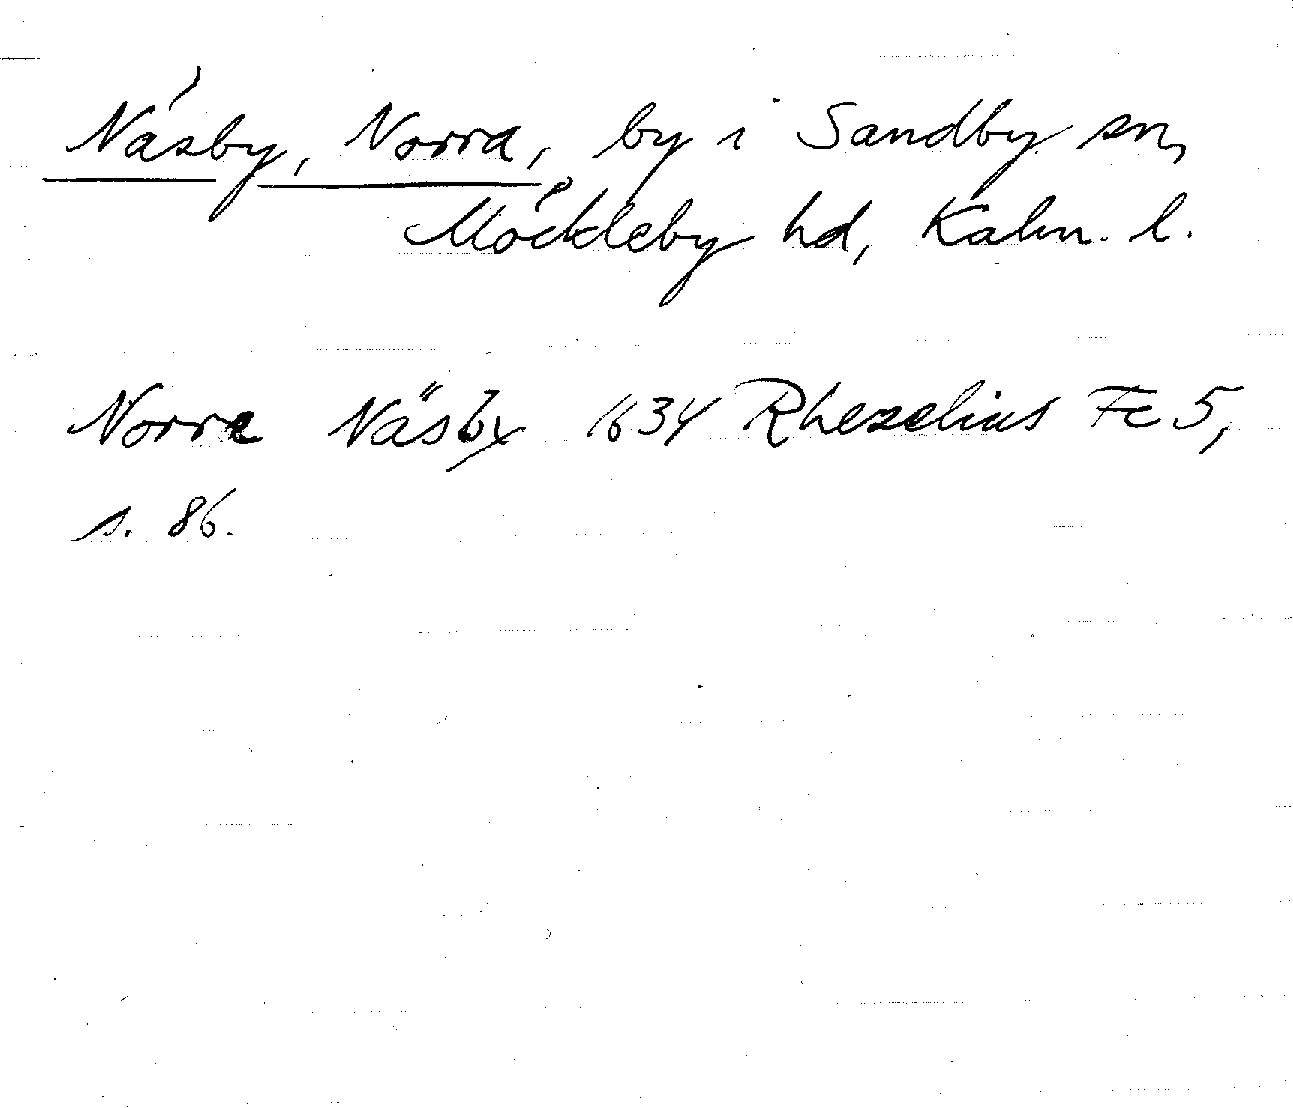 Näsby, Norra, by i Sandby sn,
Möckleby hd, Kalm. l.
Norra Näsby 1634 Rhezelius Fc 5,
s. 86.